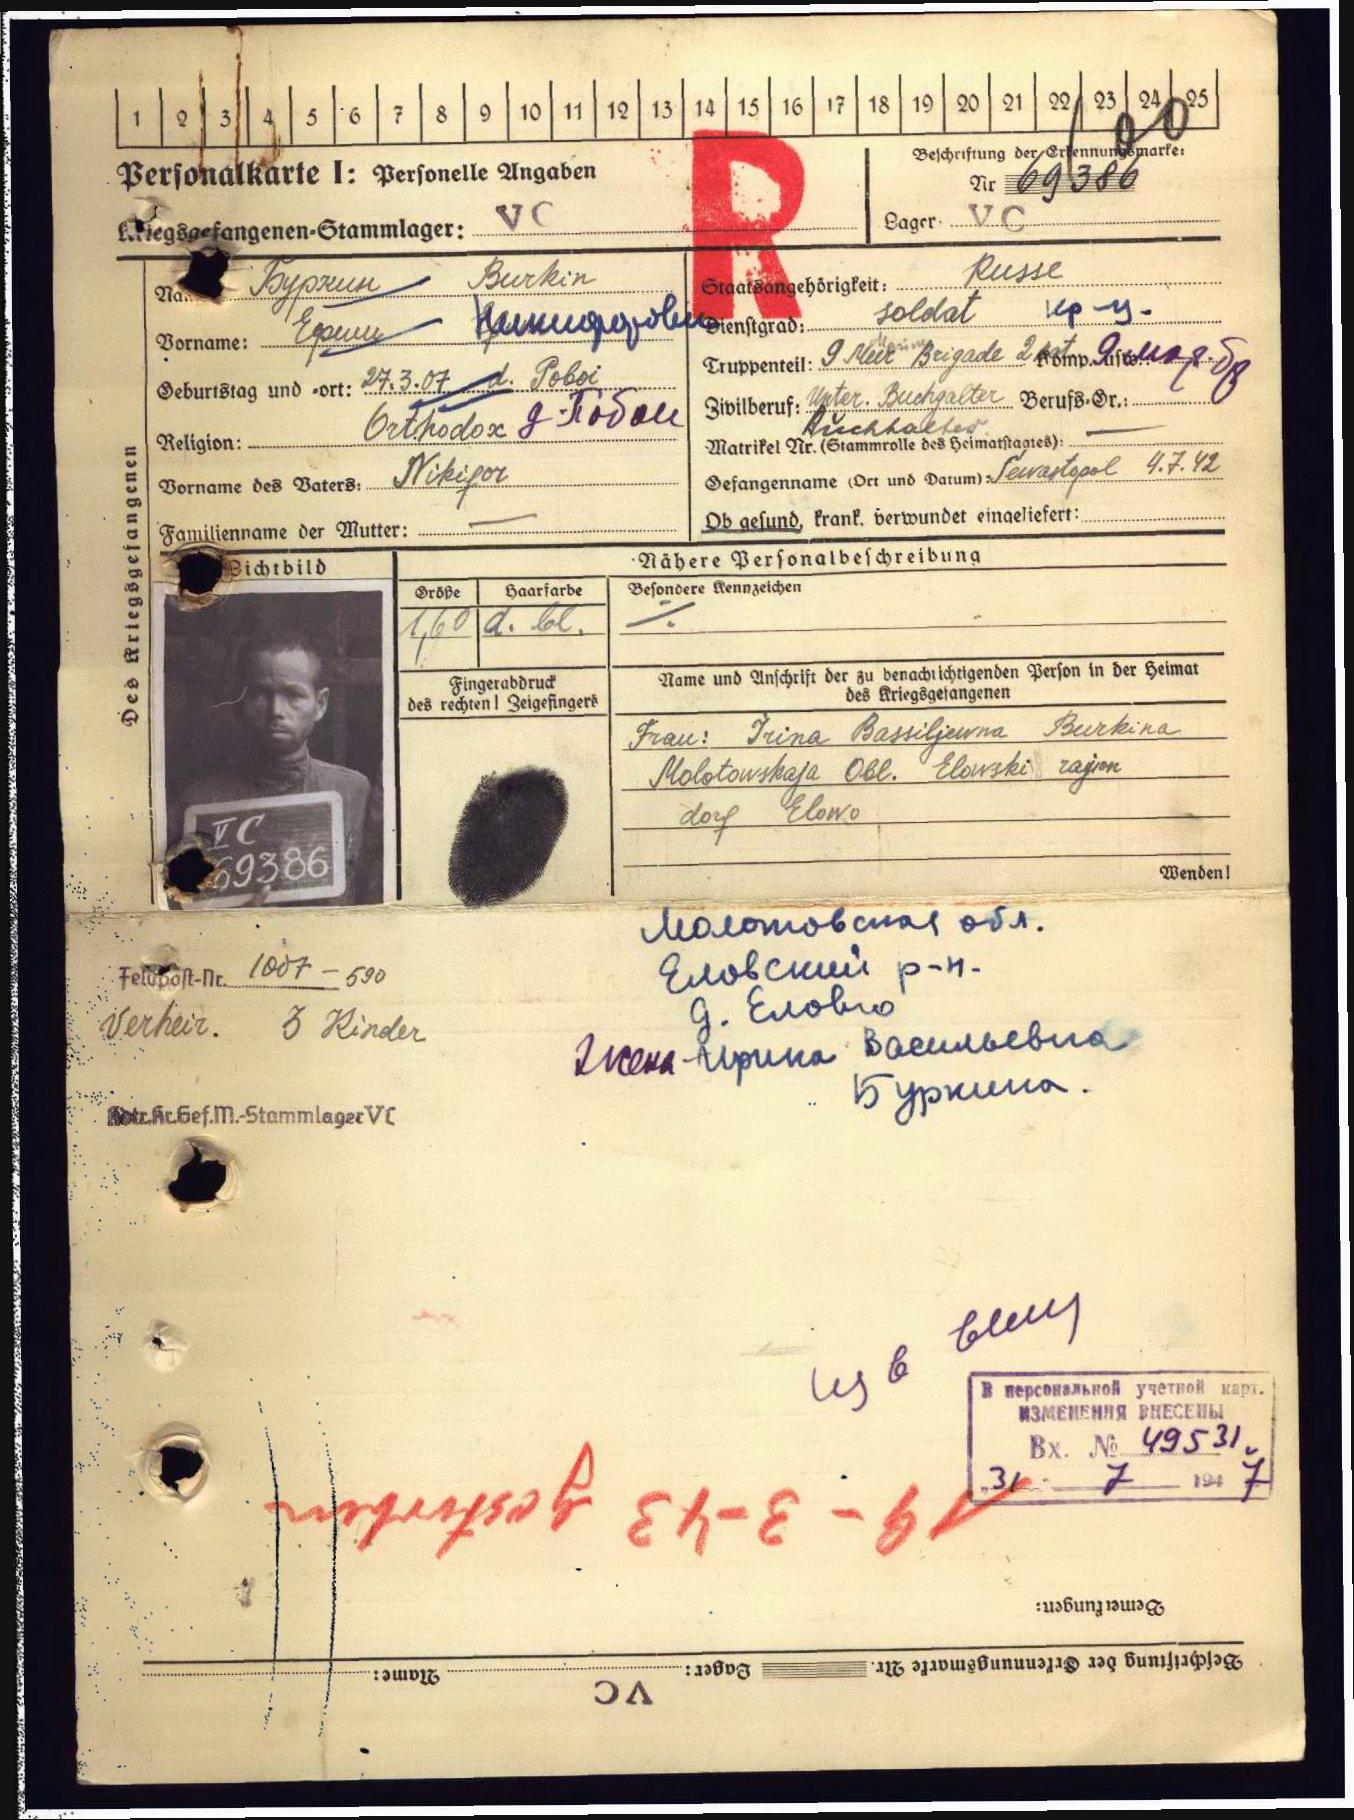 1 2 3 4 5 6 7 8 9 10 11 12 13 14 15 16 17 18 19 20 21 22 23 24 25
R
Personalkarte I: Personelle Angaben
Kriegsgefangenen-Stammlager: VC
Beschriftung der Erkennungsmarke:
Nr 69386
Lager: VC
Des Kriegsgefangenen
Name: Буркин Burkin
Vorname: Ефим Никифорович
Geburtstag und -ort: 27.3.07 d. Poboi
Religion: Orthodox д. Побои
Vorname des Vaters: Nikifor
Familienname der Mutter: —
Staatsangehörigkeit: Russe
Dienstgrad: soldat кр-ц.
Truppenteil: 9 Meer Marine Brigade 2 bat. Komp. usw.: 9 мор. бр
Zivilberuf: Unter. Buchgalter Berufs-Gr.:
Buchhalter
Matrikel Nr. (Stammrolle des Heimatstaates): —
Gefangenname (Ort und Datum): Sewastopol 4.7.42
Ob gesund, krank, verwundet eingeliefert:
Lichtbild
Nähere Personalbeschreibung
Größe Haarfarbe Besondere Kennzeichen
1,60 d. bl. ⁒
Fingerabdruck
des rechten! Zeigefingers
Name und Anschrift der zu benachrichtigenden Person in der Heimat
des Kriegsgefangenen
Frau: Irina Bassiljewna Burkina
Molotowskaja Obl. Elowski rajon
dorf Elowo
Wenden!
VC
69386
Feldpost-Nr. 1007 - 590
Verheir. 3 Kinder
Kdtr.Kr.Gef.M.-Stammlager VC
Молотовская обл.
Еловский р-н.
д. Елово
Жена - Ирина Васильевна
Буркина.
В персональной учетной карт.
ИЗМЕНЕНИЯ ВНЕСЕНЫ
Вх. № 49531
„31" 7 1947
19-3-43 gestorben
Bemerkungen:
Beschriftung der Erkennungsmarke Nr. Lager: Name:
VC